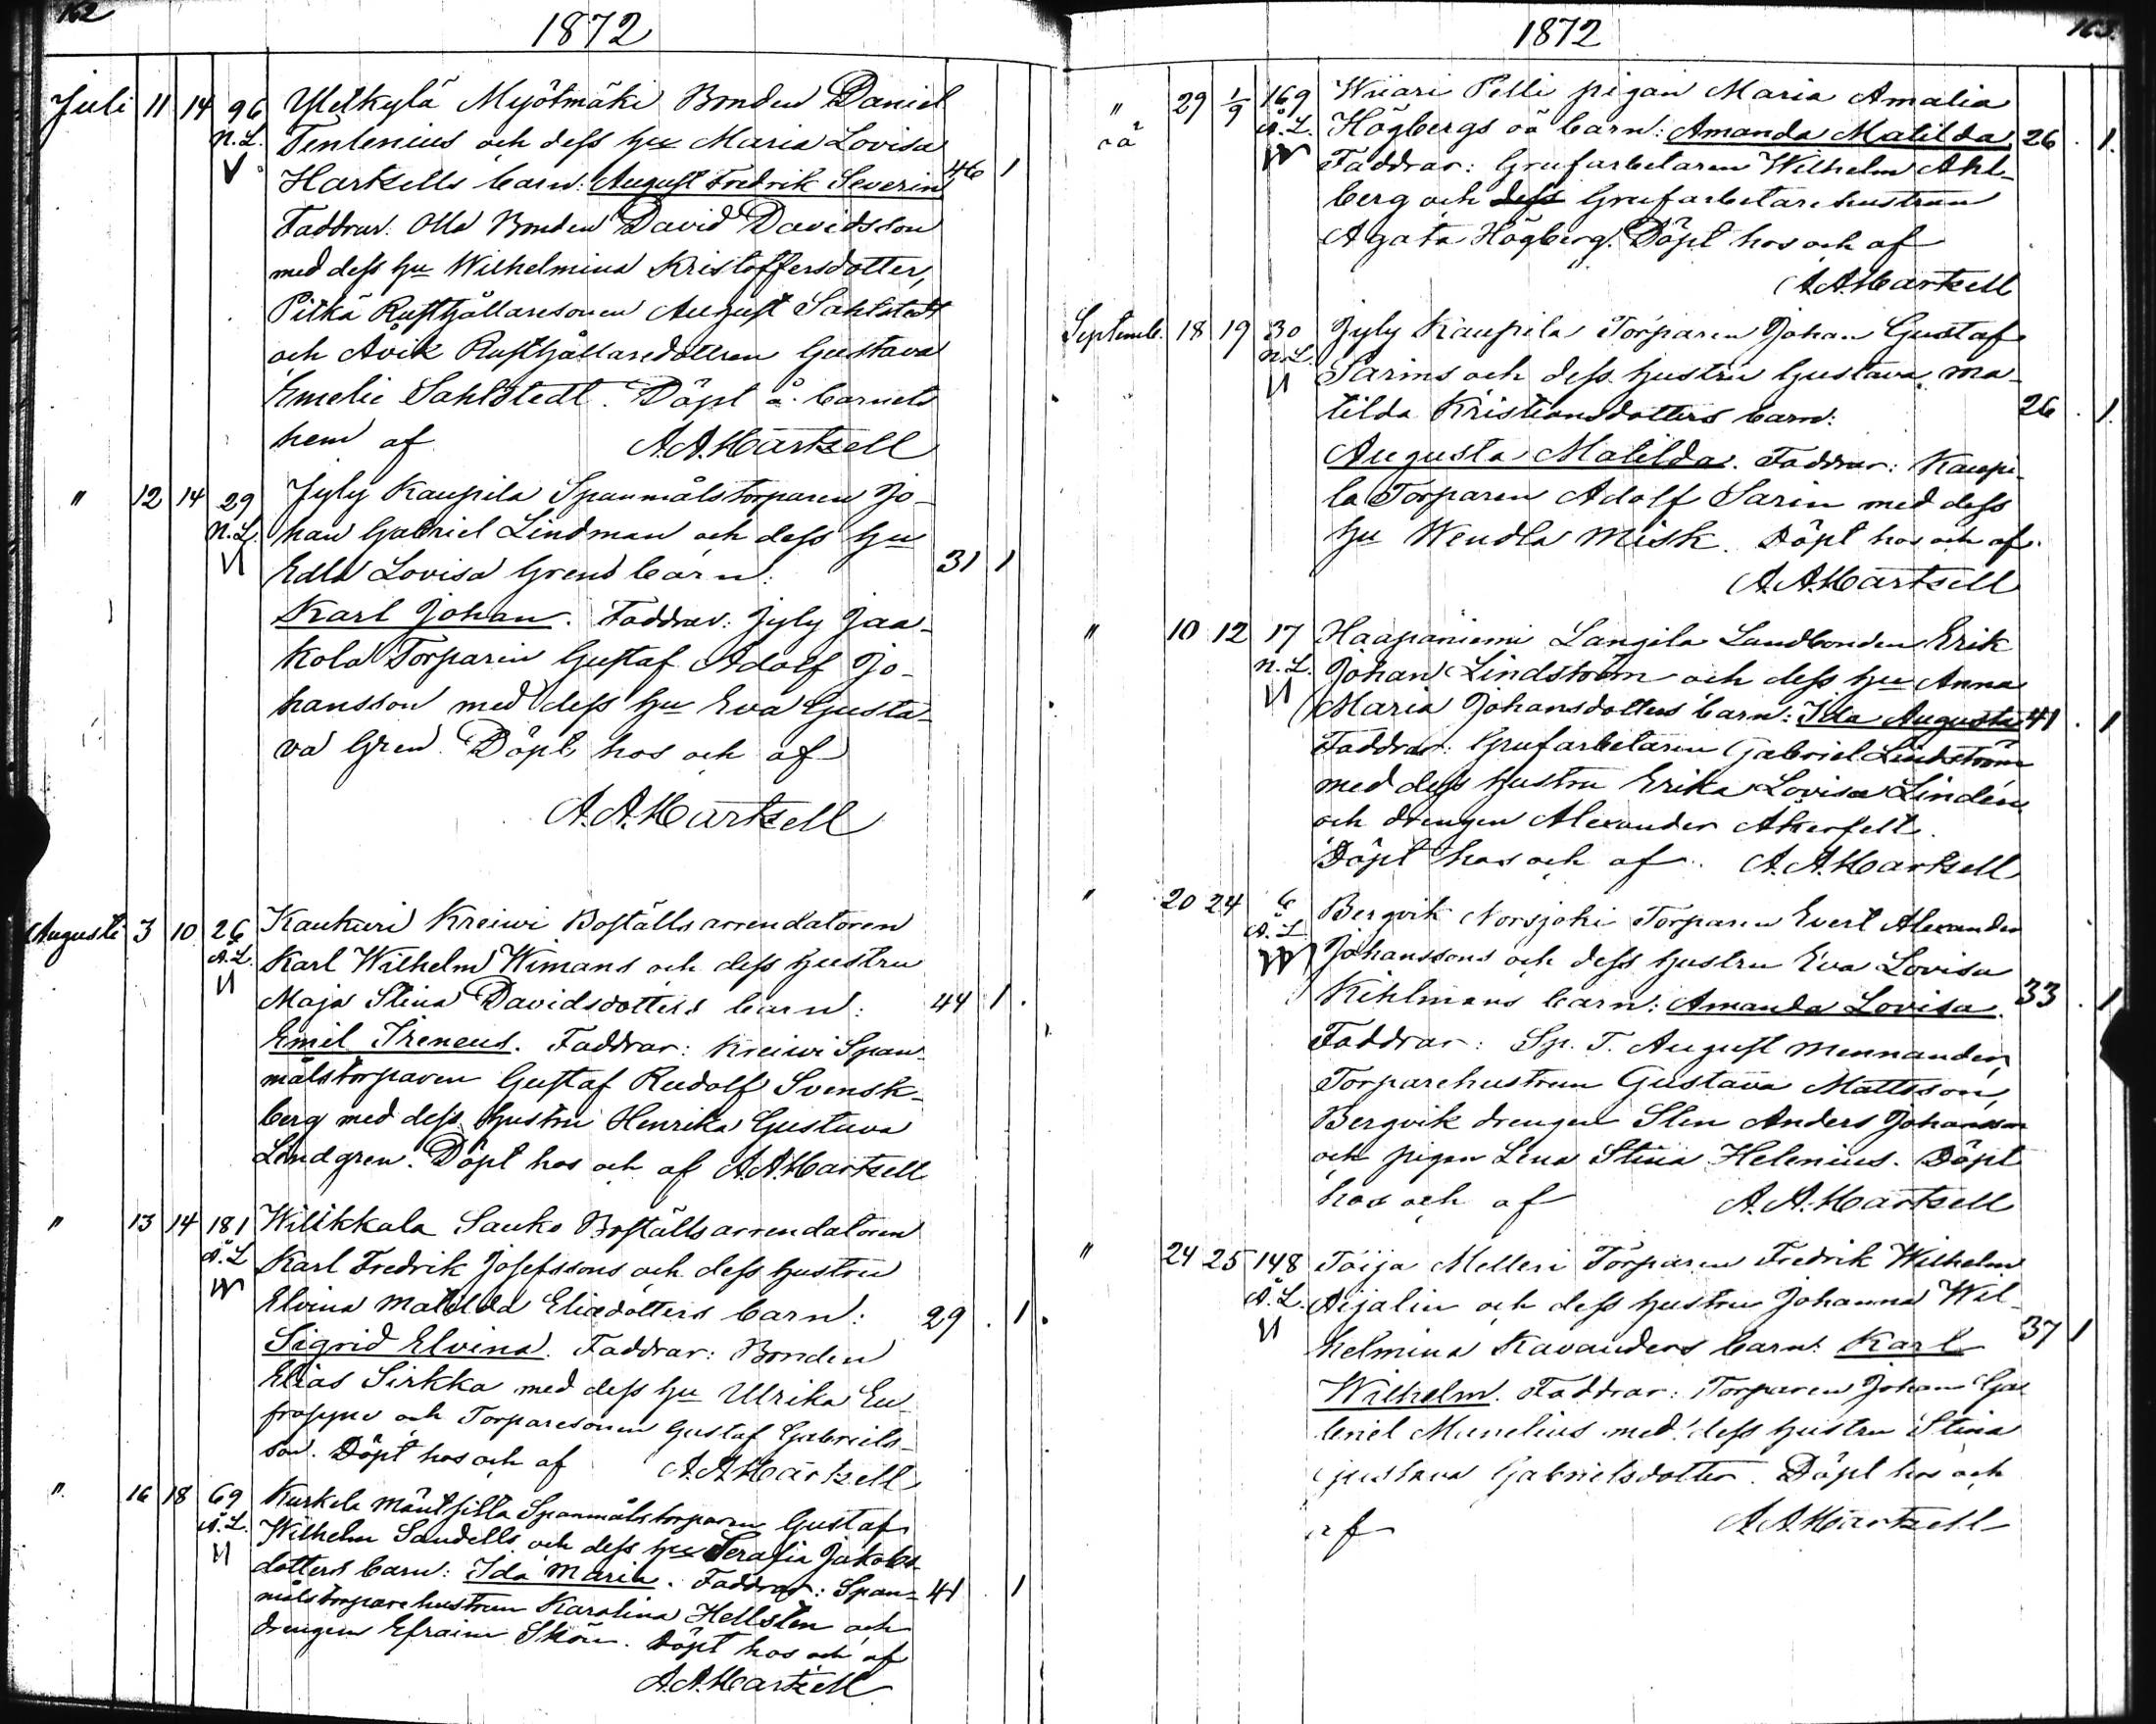 162
1872
Juli 11 14 96 Yletkylä Myötmäki Bonden Daniel
N.L. Tenlenius och dess hu Maria Lovisa
V Hartzells barn: August Fredrik Severin 46 1
Faddrar: Olla Bonden David Davidsson
med dess hu Wilhelmina Kristoffersdotter,
Pitkä Rusthållaresonen August Sahlstedt
och Avik Rusthållaredottren Gustava
Emelie Sahlstedt. Döpt å barnets
hem af A.A. Hartzell
" 12 14 29 Jyly Kaupila Spanmålstorparen Jo-
N.L. han Gabriel Lindman och dess hu
Edla Lovisa Grens barn: 31 1
Karl Johan. Faddrar: Jyly Jaa-
kola Torparen Gustaf Adolf Jo-
hansson med dess hu Eva Gusta-
va Gren. Döpt hos och af
A.A. Hartzell
Augusti 3 10 26 Kaukuri Kreiwi Boställsarrendatoren
Å.L. Karl Wilhelm Wimans och dess hustru
Maja Stina Davidsdotters barn: 44 1.
Emil Ireneus. Faddrar: Kreiwi Span-
målstorparen Gustaf Rudolf Svensk-
berg med dess hustru Henrika Gustava
Lindgren. Döpt hos och af A.A. Hartzell
" 13 14 181 Wilikkala Sauko Boställsarrendatoren
Å.L. Karl Fredrik Josefssons och dess hustru
Elvina Matilda Eliedotters barn: 29 . 1.
Sigrid Elvina. Faddrar: Bonden
Elias Sirkka med dess hu Ulrika Eu-
frosyne och Torparesonen Gustaf Gabriels-
son. Döpt hos och af A.A. Hartzell
" 16 18 69 Kurkela Mäntsilla Spanmålstorparen Gustaf
Å.L. Wilhelm Sandells och dess hu Serafia Jakobs-
dotters barn: Ida Maria. Faddrar: Span- 41 . 1
målstorparehustrun Karolina Hellsten och
drengen Efraim Skön. Döpt hos och af
A.A. Hartzell
163.
1872
" 29 1/9 169 Wiiari Pelli pigan Maria Amalia
oä Å.L. Högbergs oä barn: Amanda Matilda 26 . 1.
Faddrar: Grufarbetaren Wilhelm Ahl-
berg och dess Grufarbetarehustrun
Agata Högberg. Döpt hos och af
A.A. Hartzell
Septemb. 18 19 30 Jyly Kaupila Torparen Johan Gustaf
N.L. Sarins och dess hustru Gustava Ma-
tilda Kristiansdotters barn: 26 . 1.
Augusta Matilda. Faddrar: Kaupi-
la Torparen Adolf Sarin med dess
hu Wendla Misk. Döpt hos och af
A.A. Hartzell
" 10 12 17 Haapaniemi Langila Landbonden Erik
N.L. Johan Lindström och dess hu Anna
Maria Johansdotters barn: Ida Augusta 41 . 1
Faddrar: Grufarbetaren Gabriel Lindström
med dess hustru Erika Lovisa Lindén
och drengen Alexander Åkerfelt.
Döpt hos och af A.A. Hartzell
" 20 24 6 Bergvik Norsjoki Torparen Evert Alexander
Å.L. Johanssons och dess hustru Eva Lovisa
Kihlmans barn: Amanda Lovisa. 33 . 1
Faddrar: Sp. T. August Mennander,
Torparehustrun Gustava Mattsson,
Bergvik drengen Sten Anders Johansson
och pigan Lena Stina Helenius. Döpt
hos och af A.A. Hartzell
" 24 25 148 Toija Melleri Torparen Fredrik Wilhelm
Å.L. Aijalin och dess hustru Johanna Wil-
helmina Kavanders barn: Karl 37 1
Wilhelm. Faddrar: Torparen Johan Ga-
briel Munelius med dess hustru Stina
Gustava Gabrielsdotter. Döpt hos och
af A.A. Hartzell